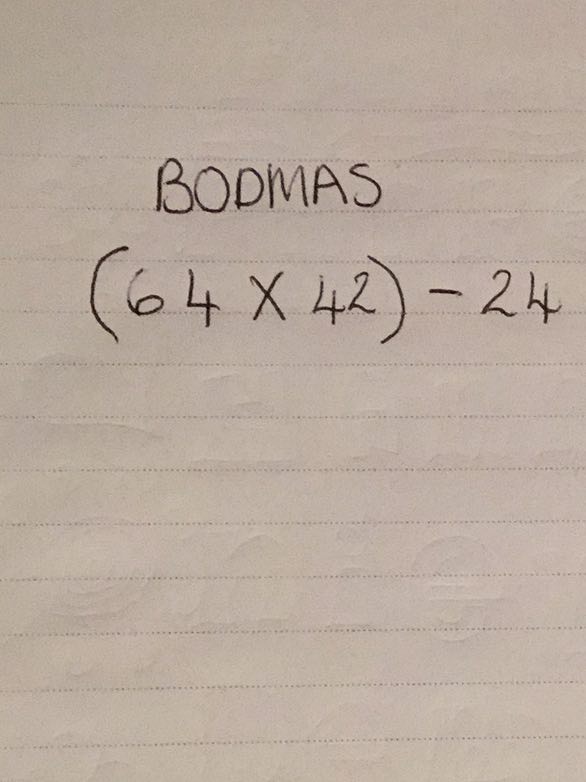 BODMAS
(64 X 42) - 24